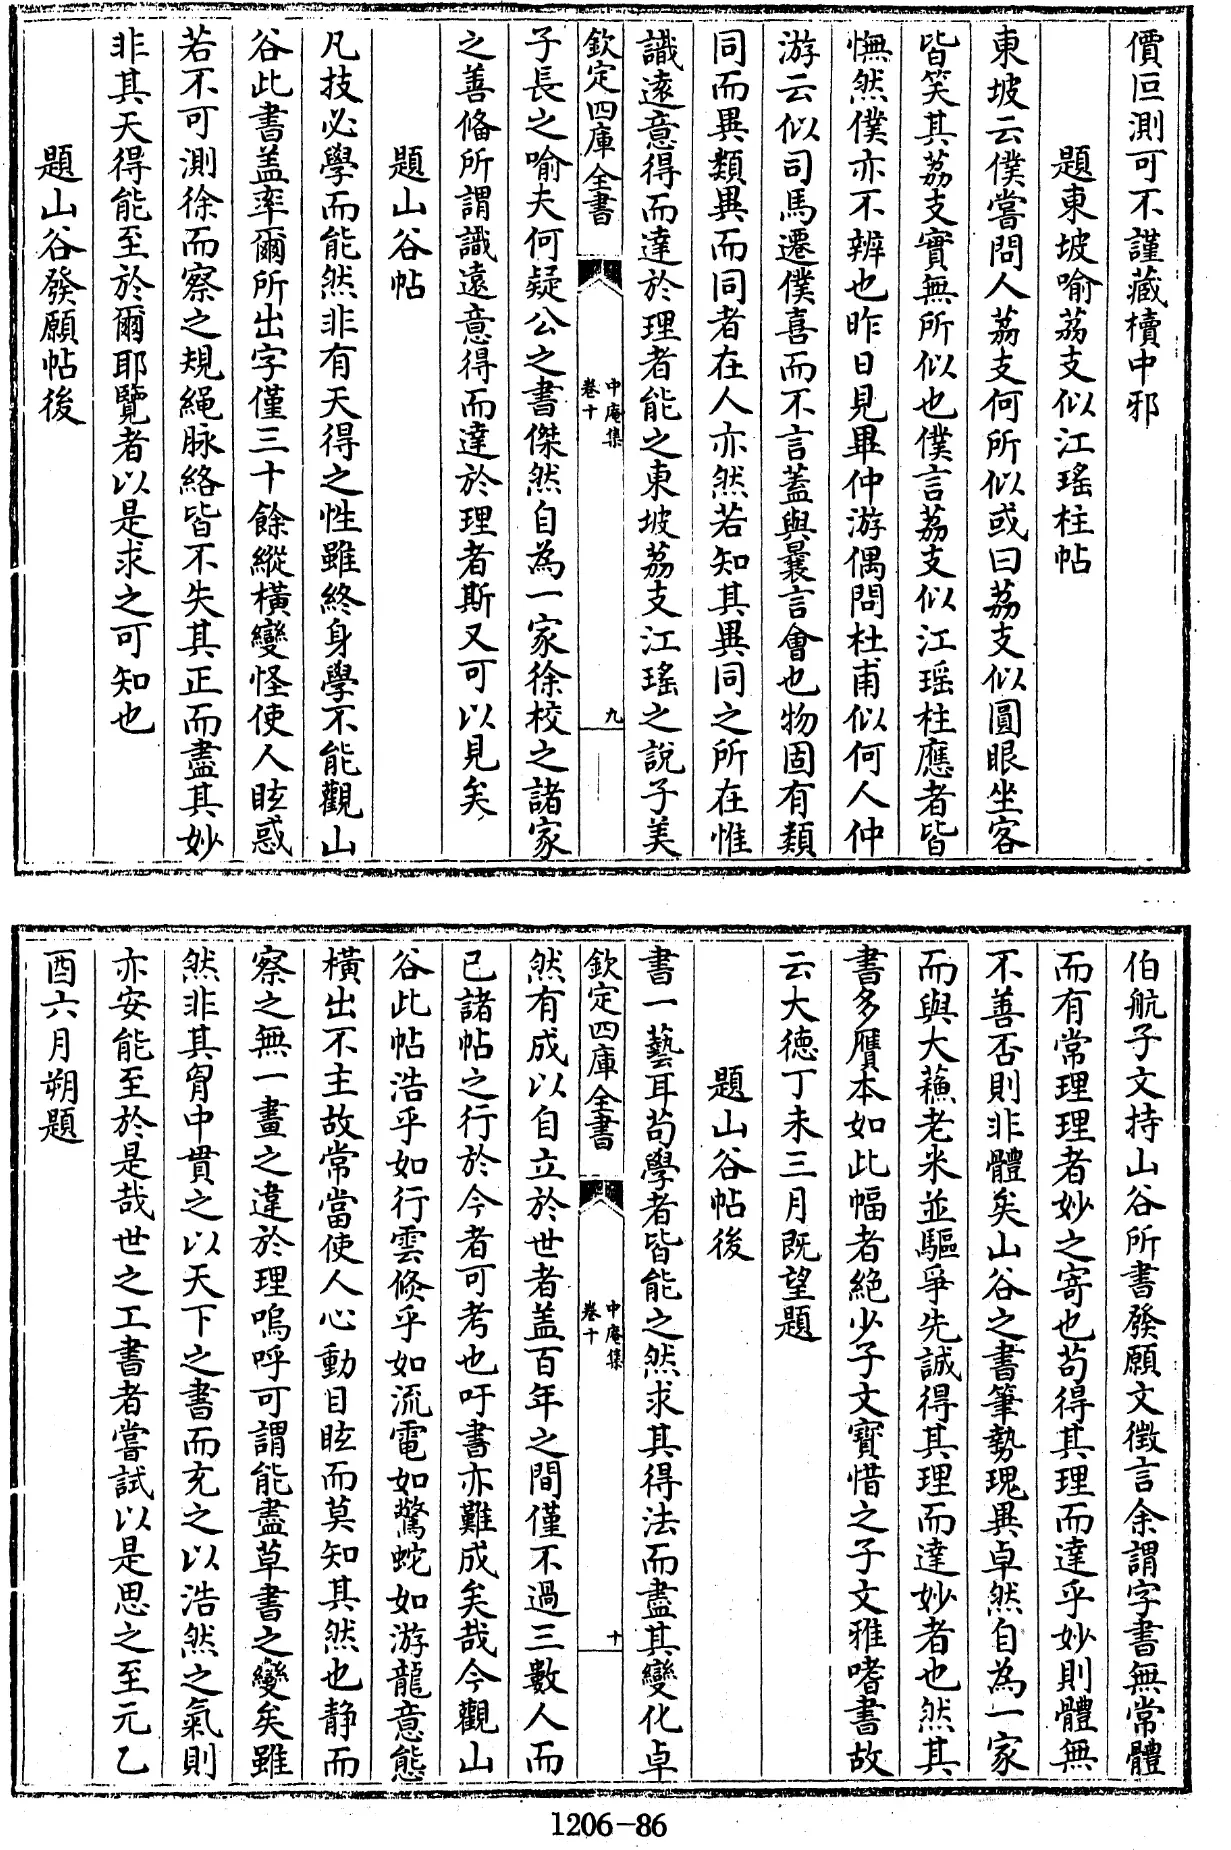 價叵測可不謹藏櫝中邪
題東坡喻荔支似江瑤柱帖
東坡云僕嘗問人荔支何所似或曰荔支似圓眼坐客
皆笑其荔支實無所似也僕言荔支似江瑤柱應者皆
憮然僕亦不辨也昨日見畢仲游偶問杜甫似何人仲
游云似司馬遷僕喜而不言蓋與曩言會也物固有類
同而異類異而同者在人亦然若知其異同之所在惟
識遠意得而達於理者能之東坡荔支江瑤之說子美
欽定四庫全書
中庵集
卷十
九
子長之喻夫何疑公之書傑然自為一家徐校之諸家
之善俻所謂識遠意得而達於理者斯又可以見矣
題山谷帖
凡技必學而能然非有天得之性雖終身學不能觀山
谷此書盖率爾所出字僅三十餘縱橫變怪使人眩惑
若不可測徐而察之規繩脉絡皆不失其正而盡其妙
非其天得能至於爾耶覽者以是求之可知也
題山谷發願帖後
伯航子文持山谷所書發願文徵言余謂字書無常體
而有常理理者妙之寄也苟得其理而達乎妙則體無
不善否則非體矣山谷之書筆勢瑰異卓然自為一家
而與大蘓老米並驅爭先誠得其理而達妙者也然其
書多贗本如此幅者絶少子文寳惜之子文雅嗜書故
云大德丁未三月既望題
題山谷帖後
書一藝耳苟學者皆能之然求其得法而盡其變化卓
欽定四庫全書
中庵集
卷十
十
然有成以自立於世者盖百年之間僅不過三數人而
已諸帖之行於今者可考也吁書亦難成矣哉今觀山
谷此帖浩乎如行雲倏乎如流電如驚蛇如游龍意態
橫出不主故常當使人心動目眩而莫知其然也静而
察之無一畫之違於理嗚呼可謂能盡草書之變矣雖
然非其胷中貫之以天下之書而充之以浩然之氣則
亦安能至於是哉世之工書者嘗試以是思之至元乙
酉六月朔題
1206-86